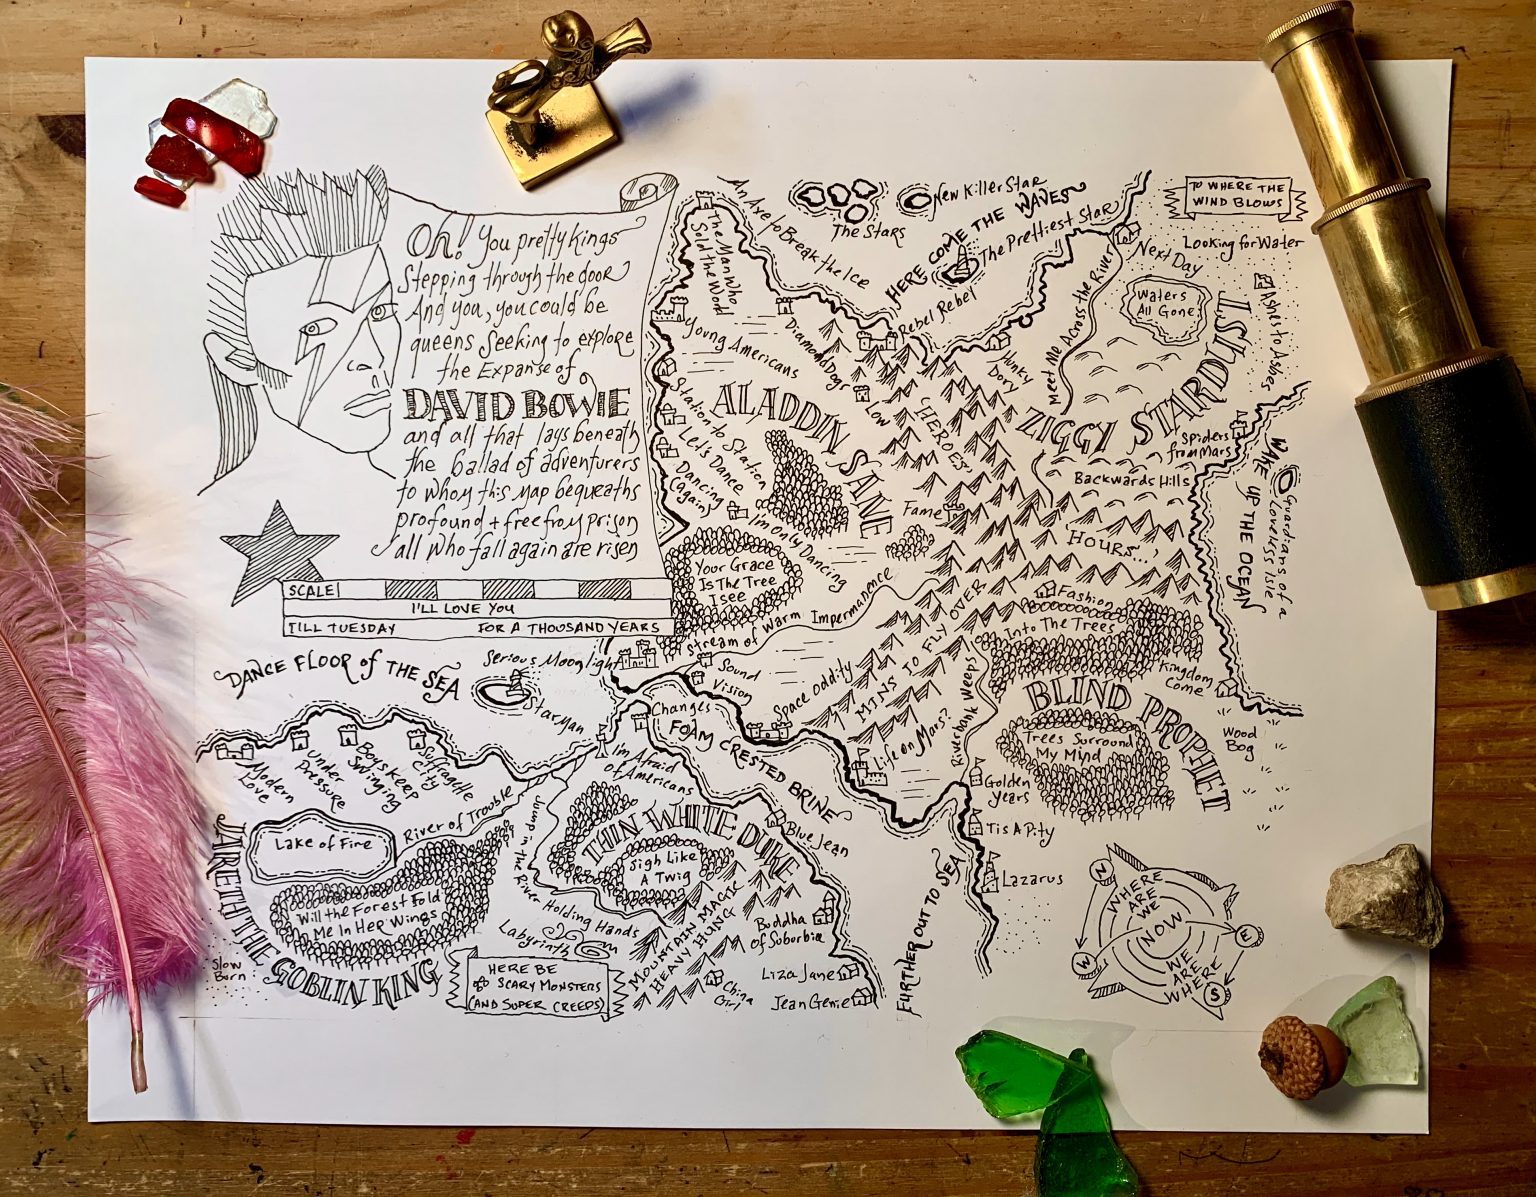 Oh! You pretty kings
stepping through the door
And you, you could be
queens seeking to explore
the Expanse of
DAVID BOWIE
and all that lays beneath
the ballad of adventurers
to whom this map bequeaths
profound + free from prison
all who fall again are risen
SCALE
I'LL LOVE YOU
TILL TUESDAY
FOR A THOUSAND YEARS
The Man Who
Sold the World
An Axe to Break the Ice
The Stars
New Killer Star
HERE COME THE WAVES
The Prettiest Star
TO WHERE THE
WIND BLOWS
Looking for Water
Next Day
Waters
All Gone
Ashes to Ashes
Young Americans
Diamond Dogs
Rebel Rebel
Hunky
Dory
Meet Me Across the River
ZIGGY STARDUST
Low
"HEROES"
ALADDIN SANE
Station to Station
Let's Dance
Dancing
(again)
I'm Only Dancing
Spiders
from Mars
Backwards Hills
WAKE UP THE OCEAN
Guardians of a
Loveless Isle
Fame
HOURS...
Your Grace
Is The Tree
I see
Stream of Warm Impermanence
Fashion
Into The Trees
Kingdom
Come
BLIND PROPHET
Trees Surround
My Mind
Wood
Bog
MTNS TO FLY OVER
Riverbank Weeps
Sound
Vision
Space Oddity
Life on Mars?
Golden
Years
Tis A Pity
Lazarus
DANCE FLOOR of THE SEA
Serious Moonlight
Starman
Changes
FOAM CRESTED BRINE
Modern
Love
Under
Pressure
Boys Keep
Swinging
Suffragette
City
I'm Afraid
of Americans
River of Trouble
Jump in the River Holding Hands
Lake of Fire
Will the Forest Fold
Me In Her Wings
JARETH THE GOBLIN KING
Slow
Burn
THIN WHITE DUKE
Sigh Like
A Twig
Blue Jean
Labyrinth
MOUNTAIN MAGIC
HEAVY HUNG
Buddha
of Suburbia
China
Girl
Liza Jane
Jean Genie
HERE BE
SCARY MONSTERS
(AND SUPER CREEPS)
FURTHER OUT TO SEA
N
E
W
S
WHERE
ARE
WE
NOW
WE
ARE
WHERE